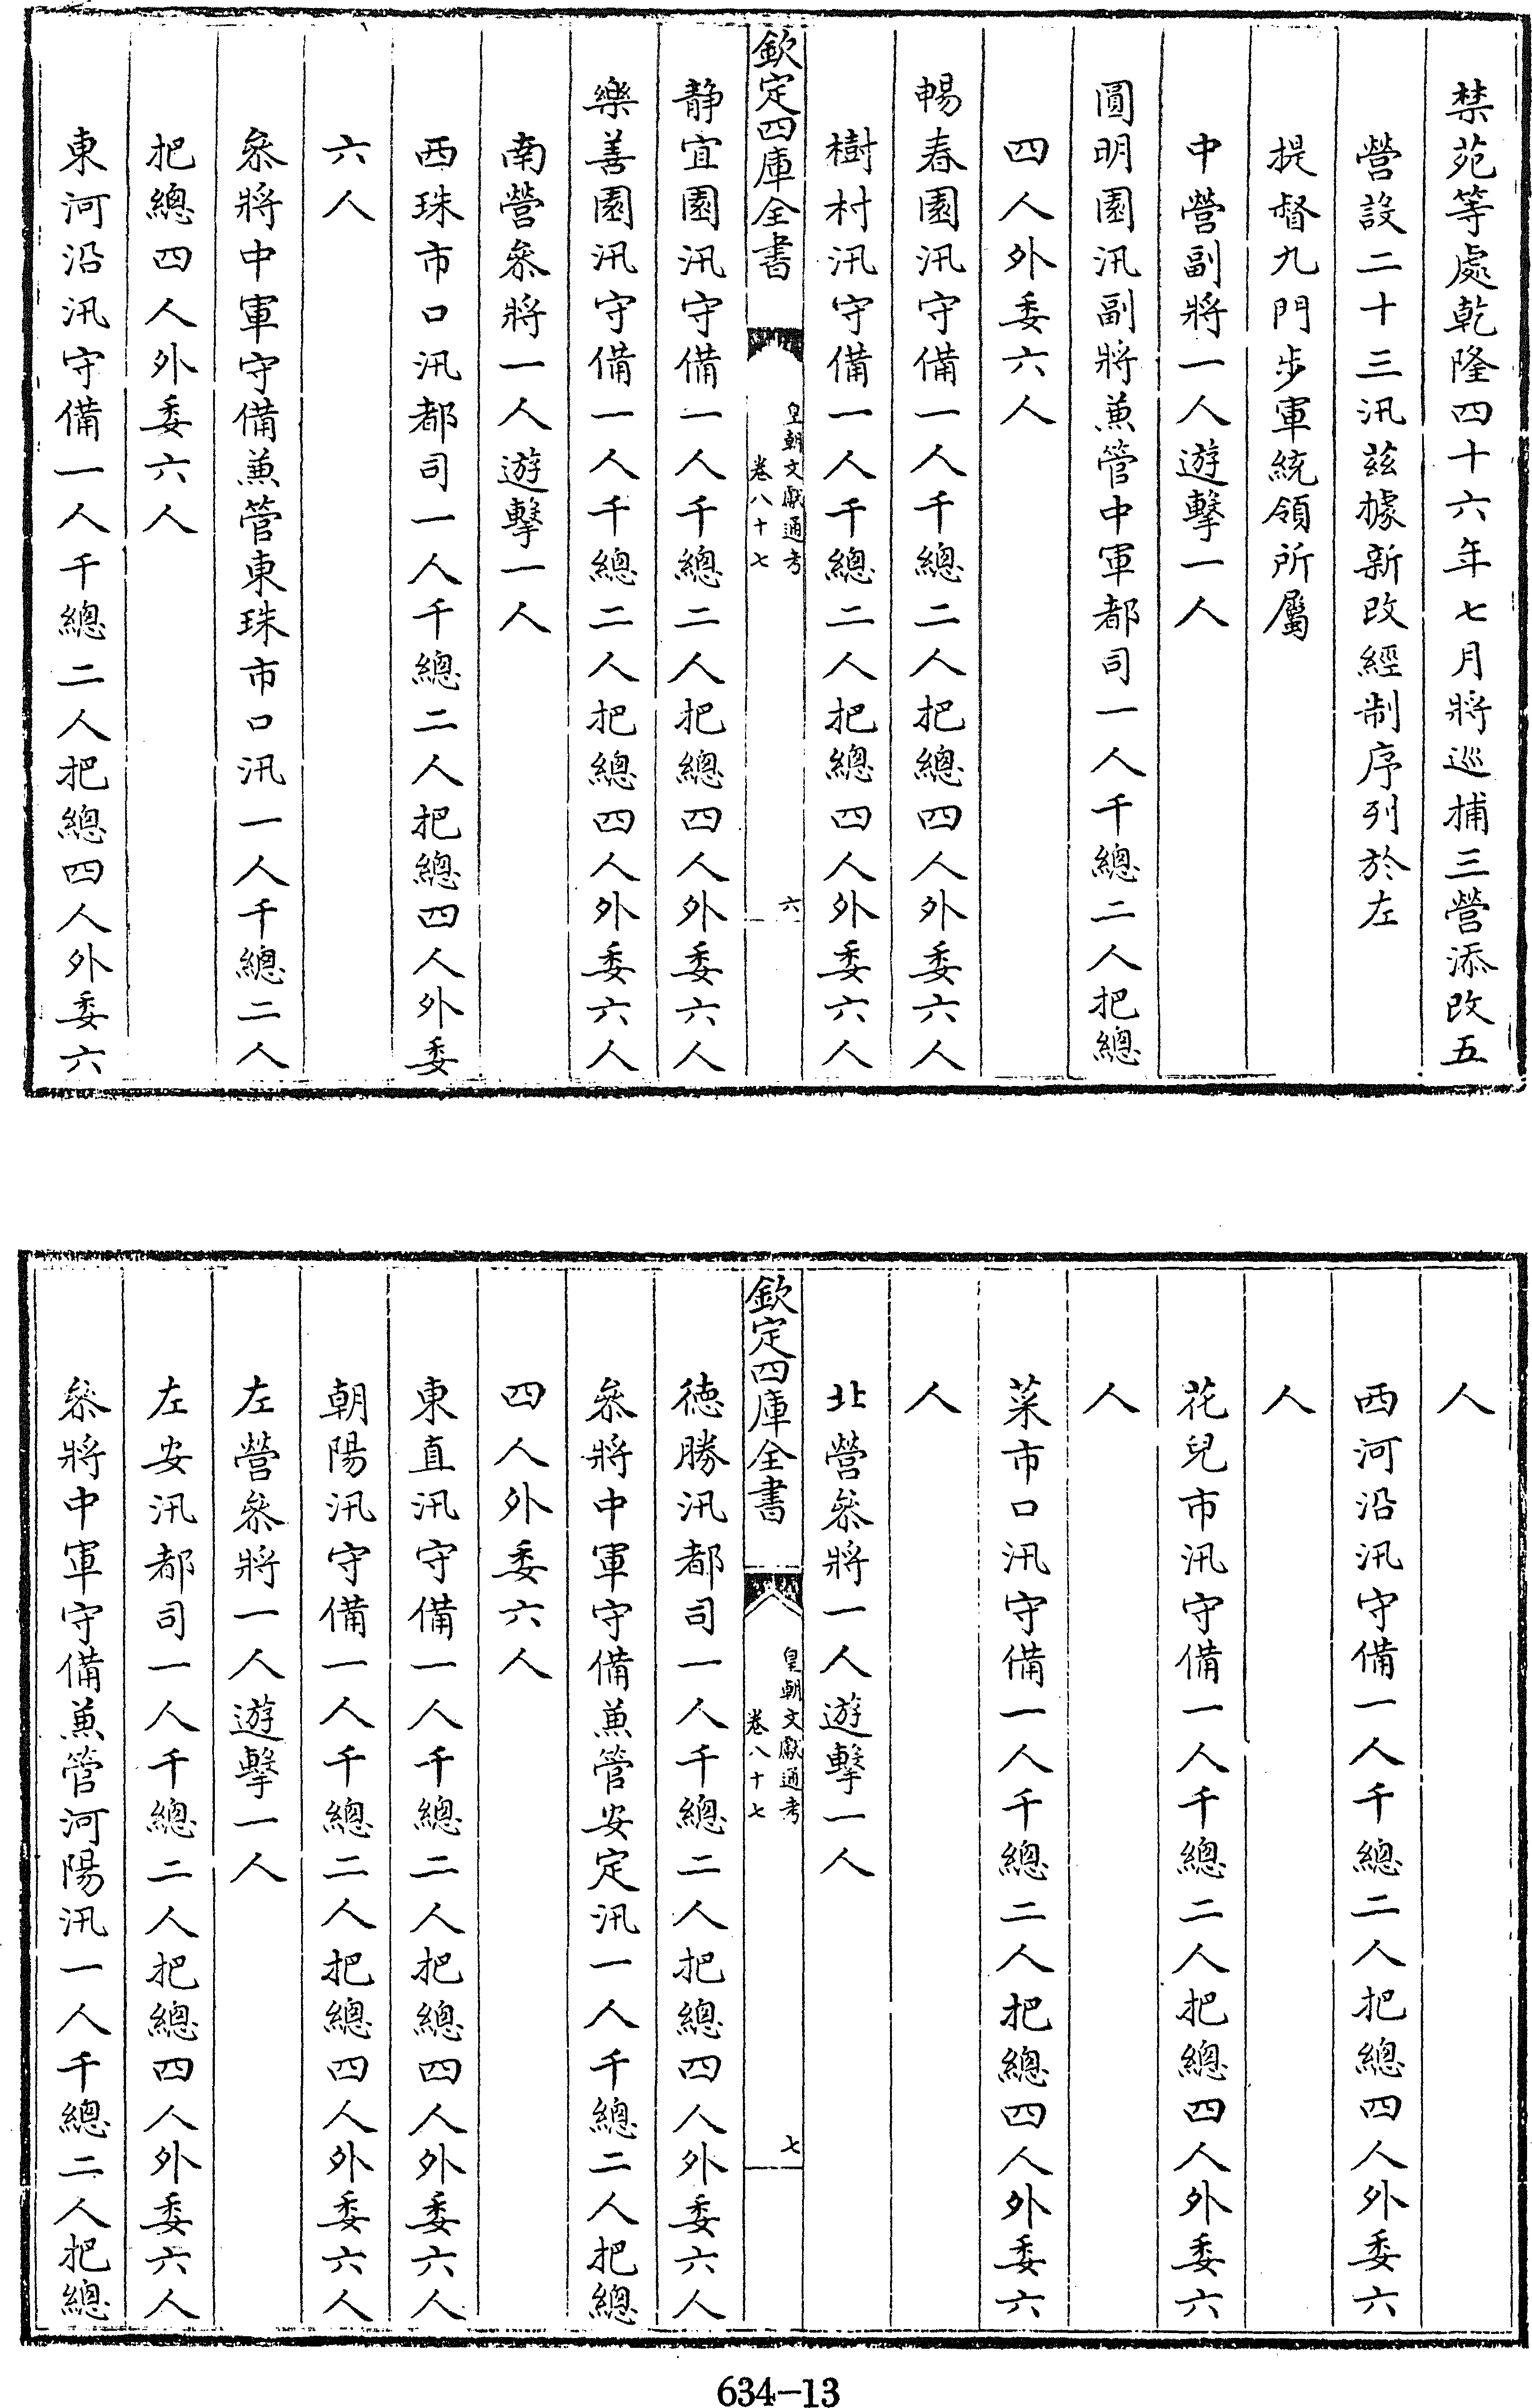 禁苑等處乾隆四十六年七月將巡捕三營添改五
營設二十三汛茲據新改經制序列於左
提督九門步軍統領所屬
中營副將一人遊擊一人
圓明園汛副將兼管中軍都司一人千總二人把總
四人外委六人
暢春園汛守備一人千總二人把總四人外委六人
樹村汛守備一人千總二人把總四人外委六人
欽定四庫全書
皇朝文獻通考
卷八十七
六
静宜園汛守備一人千總二人把總四人外委六人
樂善園汛守備一人千總二人把總四人外委六人
南營叅將一人遊擊一人
西珠市口汛都司一人千總二人把總四人外委
六人
叅將中軍守備兼管東珠市口汛一人千總二人
把總四人外委六人
東河沿汛守備一人千總二人把總四人外委六
人
西河沿汛守備一人千總二人把總四人外委六
人
花兒市汛守備一人千總二人把總四人外委六
人
菜市口汛守備一人千總二人把總四人外委六
人
北營叅將一人遊擊一人
欽定四庫全書
皇朝文獻通考
卷八十七
七
德勝汛都司一人千總二人把總四人外委六人
叅將中軍守備兼管安定汛一人千總二人把總
四人外委六人
東直汛守備一人千總二人把總四人外委六人
朝陽汛守備一人千總二人把總四人外委六人
左營叅將一人遊擊一人
左安汛都司一人千總二人把總四人外委六人
叅將中軍守備兼管河陽汛一人千總二人把總
634-13